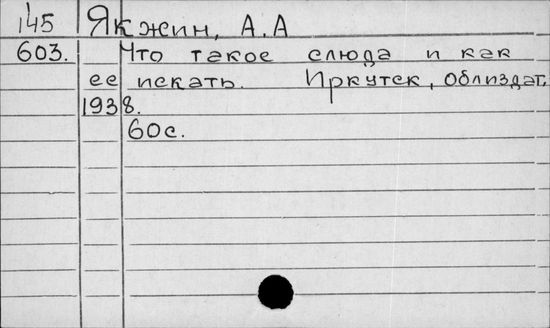 145 Якжин, А.А
603. Что такое слюда и как
ее искать. Иркутск, облиздат,
1938.
60с.